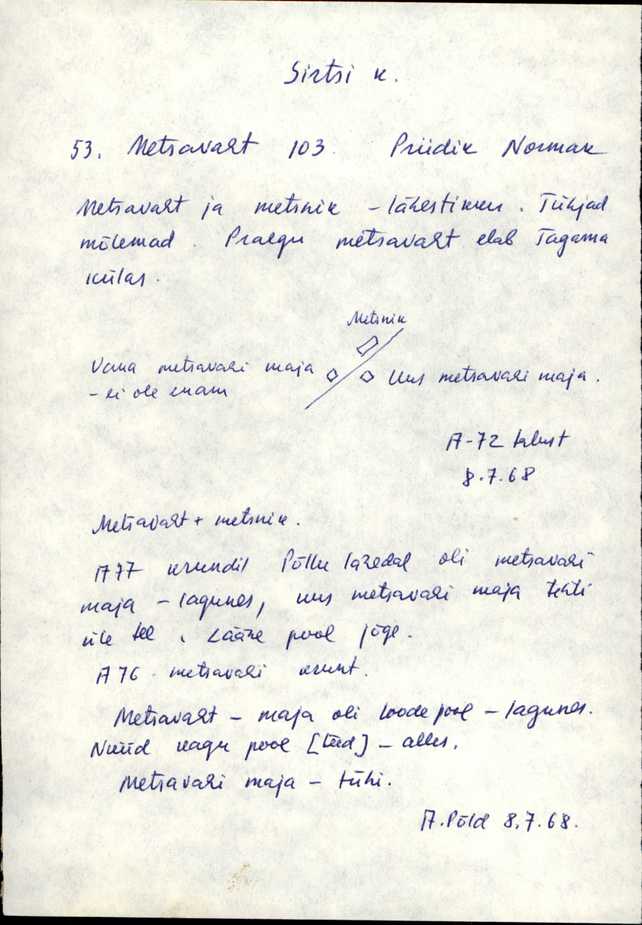 Sirtsi k.
53. Metsavaht 103. Priidik Normak
Metsavaht ja metsnik - lähestikku. Tühjad
mõlemad. Praegu metsavaht elab Tagama
külas.
Metsnik
Vana metsavahi maja
- ei ole enam
Uus metsavahi maja.
A-72 talust
8.7.68
Metsavaht + metsnik.
A77 krundil Põllu laredal oli metsavahi
maja - lagunes, uus metsavahi maja tehti
üle tee, Lääne pool jõge.
A76 metsavahi krunt.
Metsavaht - maja oli loode pool - lagunes.
Nüüd kagu pool [teed] - alles.
Metsavahi maja - tühi.
A. Põld 8.7.68.